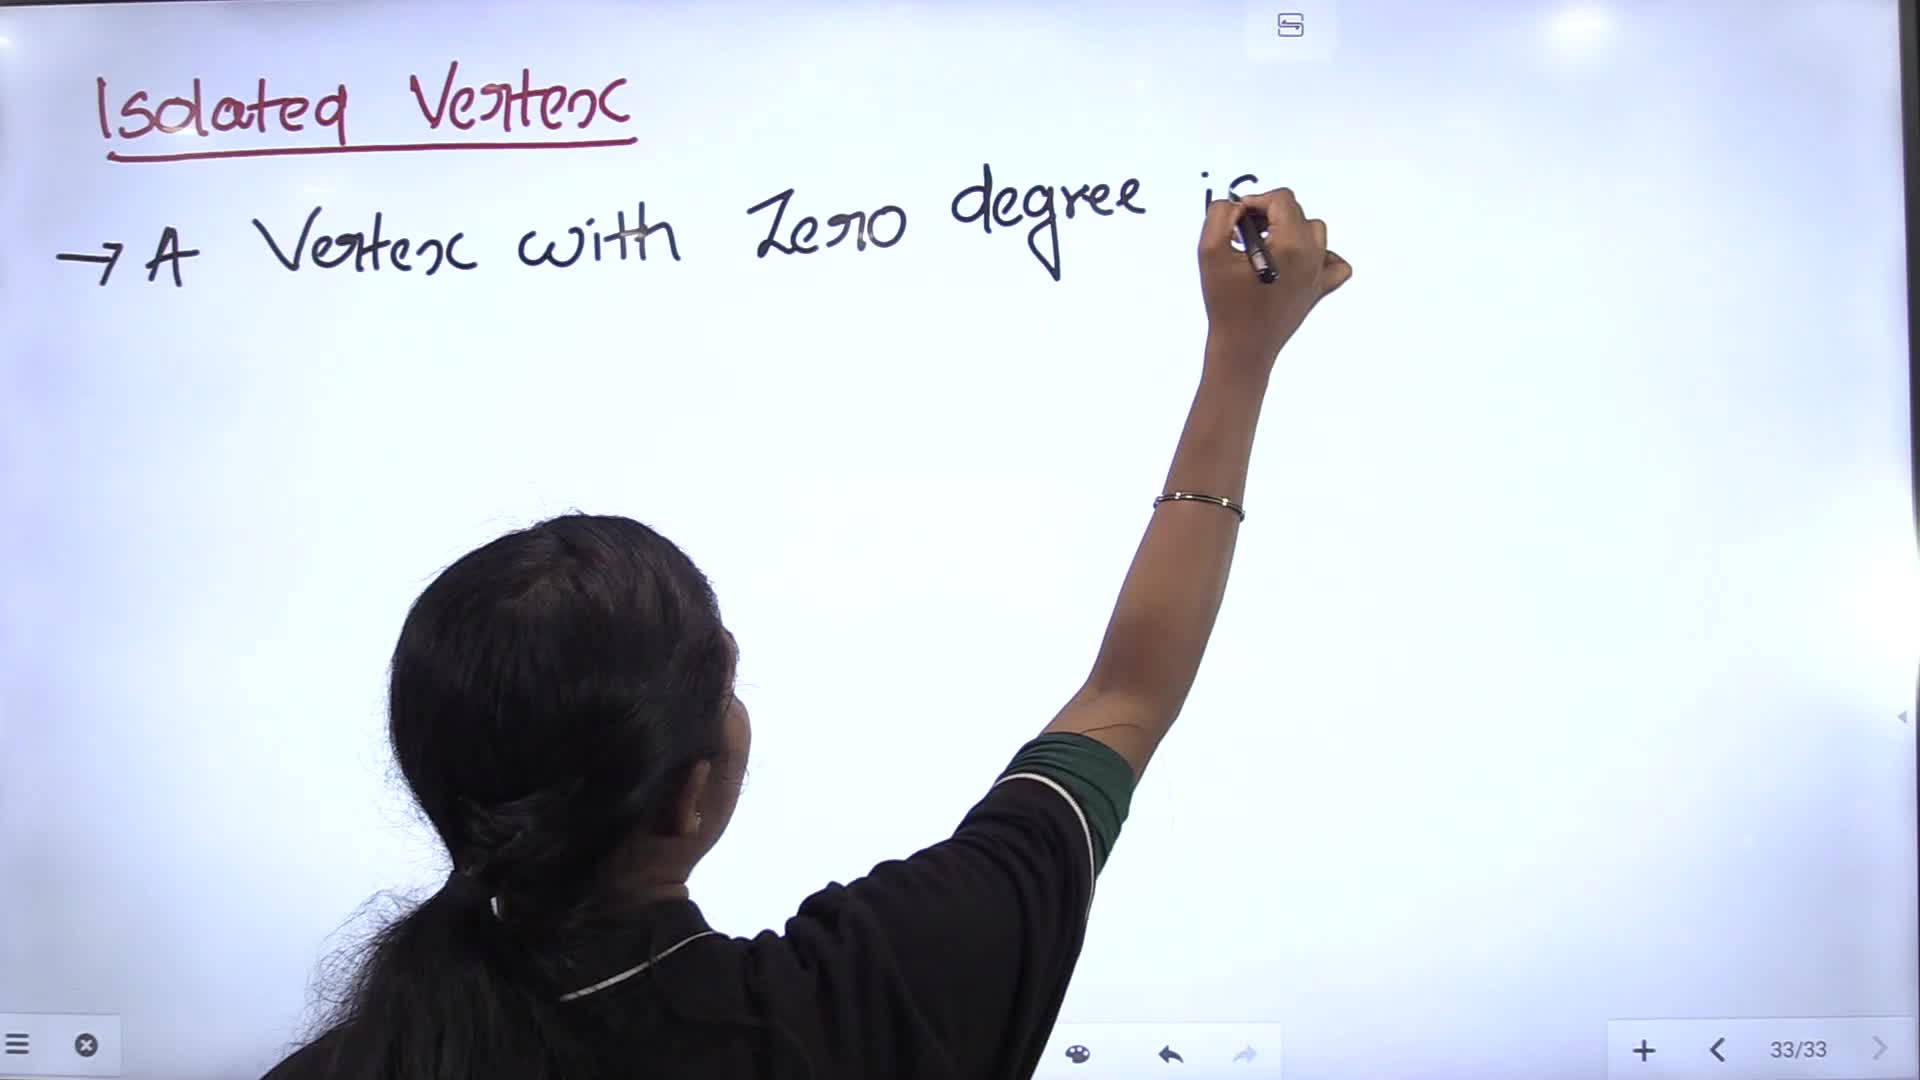 Isolated Vertex
→ A Vertex with Zero degree is
33/33